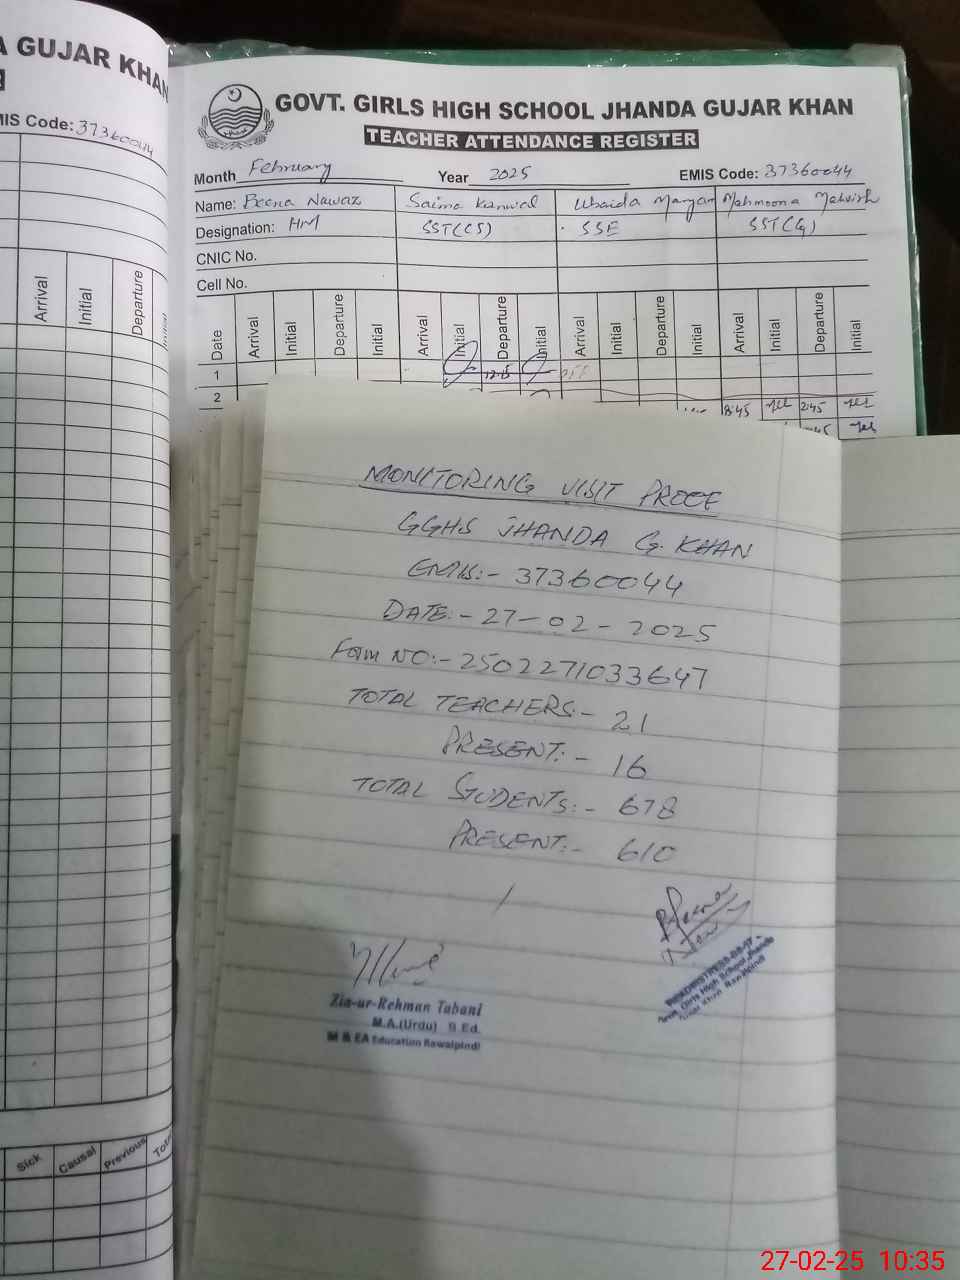 A GUJAR KHAN
MIS Code: 37360044
Arrival Initial Departure
Sick Causal Previous Tot
GOVT. GIRLS HIGH SCHOOL JHANDA GUJAR KHAN
TEACHER ATTENDANCE REGISTER
Month February Year 2025 EMIS Code: 37360044
Name: Beena Nawaz Saima Kanwal Ubaida Maryam Mehmoona Mehvish
Designation: HM SST(CS) SSE SST(G)
CNIC No.
Cell No.
Date Arrival Initial Departure Initial Arrival Initial Departure Initial Arrival Initial Departure Initial Arrival Initial Departure Initial
1 12:15
2
8:45 2:45
MONITORING VISIT PROOF
GGHS JHANDA G. KHAN
EMIS:- 37360044
DATE:- 27-02-2025
Form NO:- 2502271033647
TOTAL TEACHERS:- 21
PRESENT:- 16
TOTAL STUDENTS:- 678
PRESENT:- 610
Zia-ur-Rehman Tabani
M.A.(Urdu) B.Ed.
M & EA Education Rawalpindi
Govt. Girls High School Jhanda
Gujar Khan Rawalpindi
27-02-25 10:35